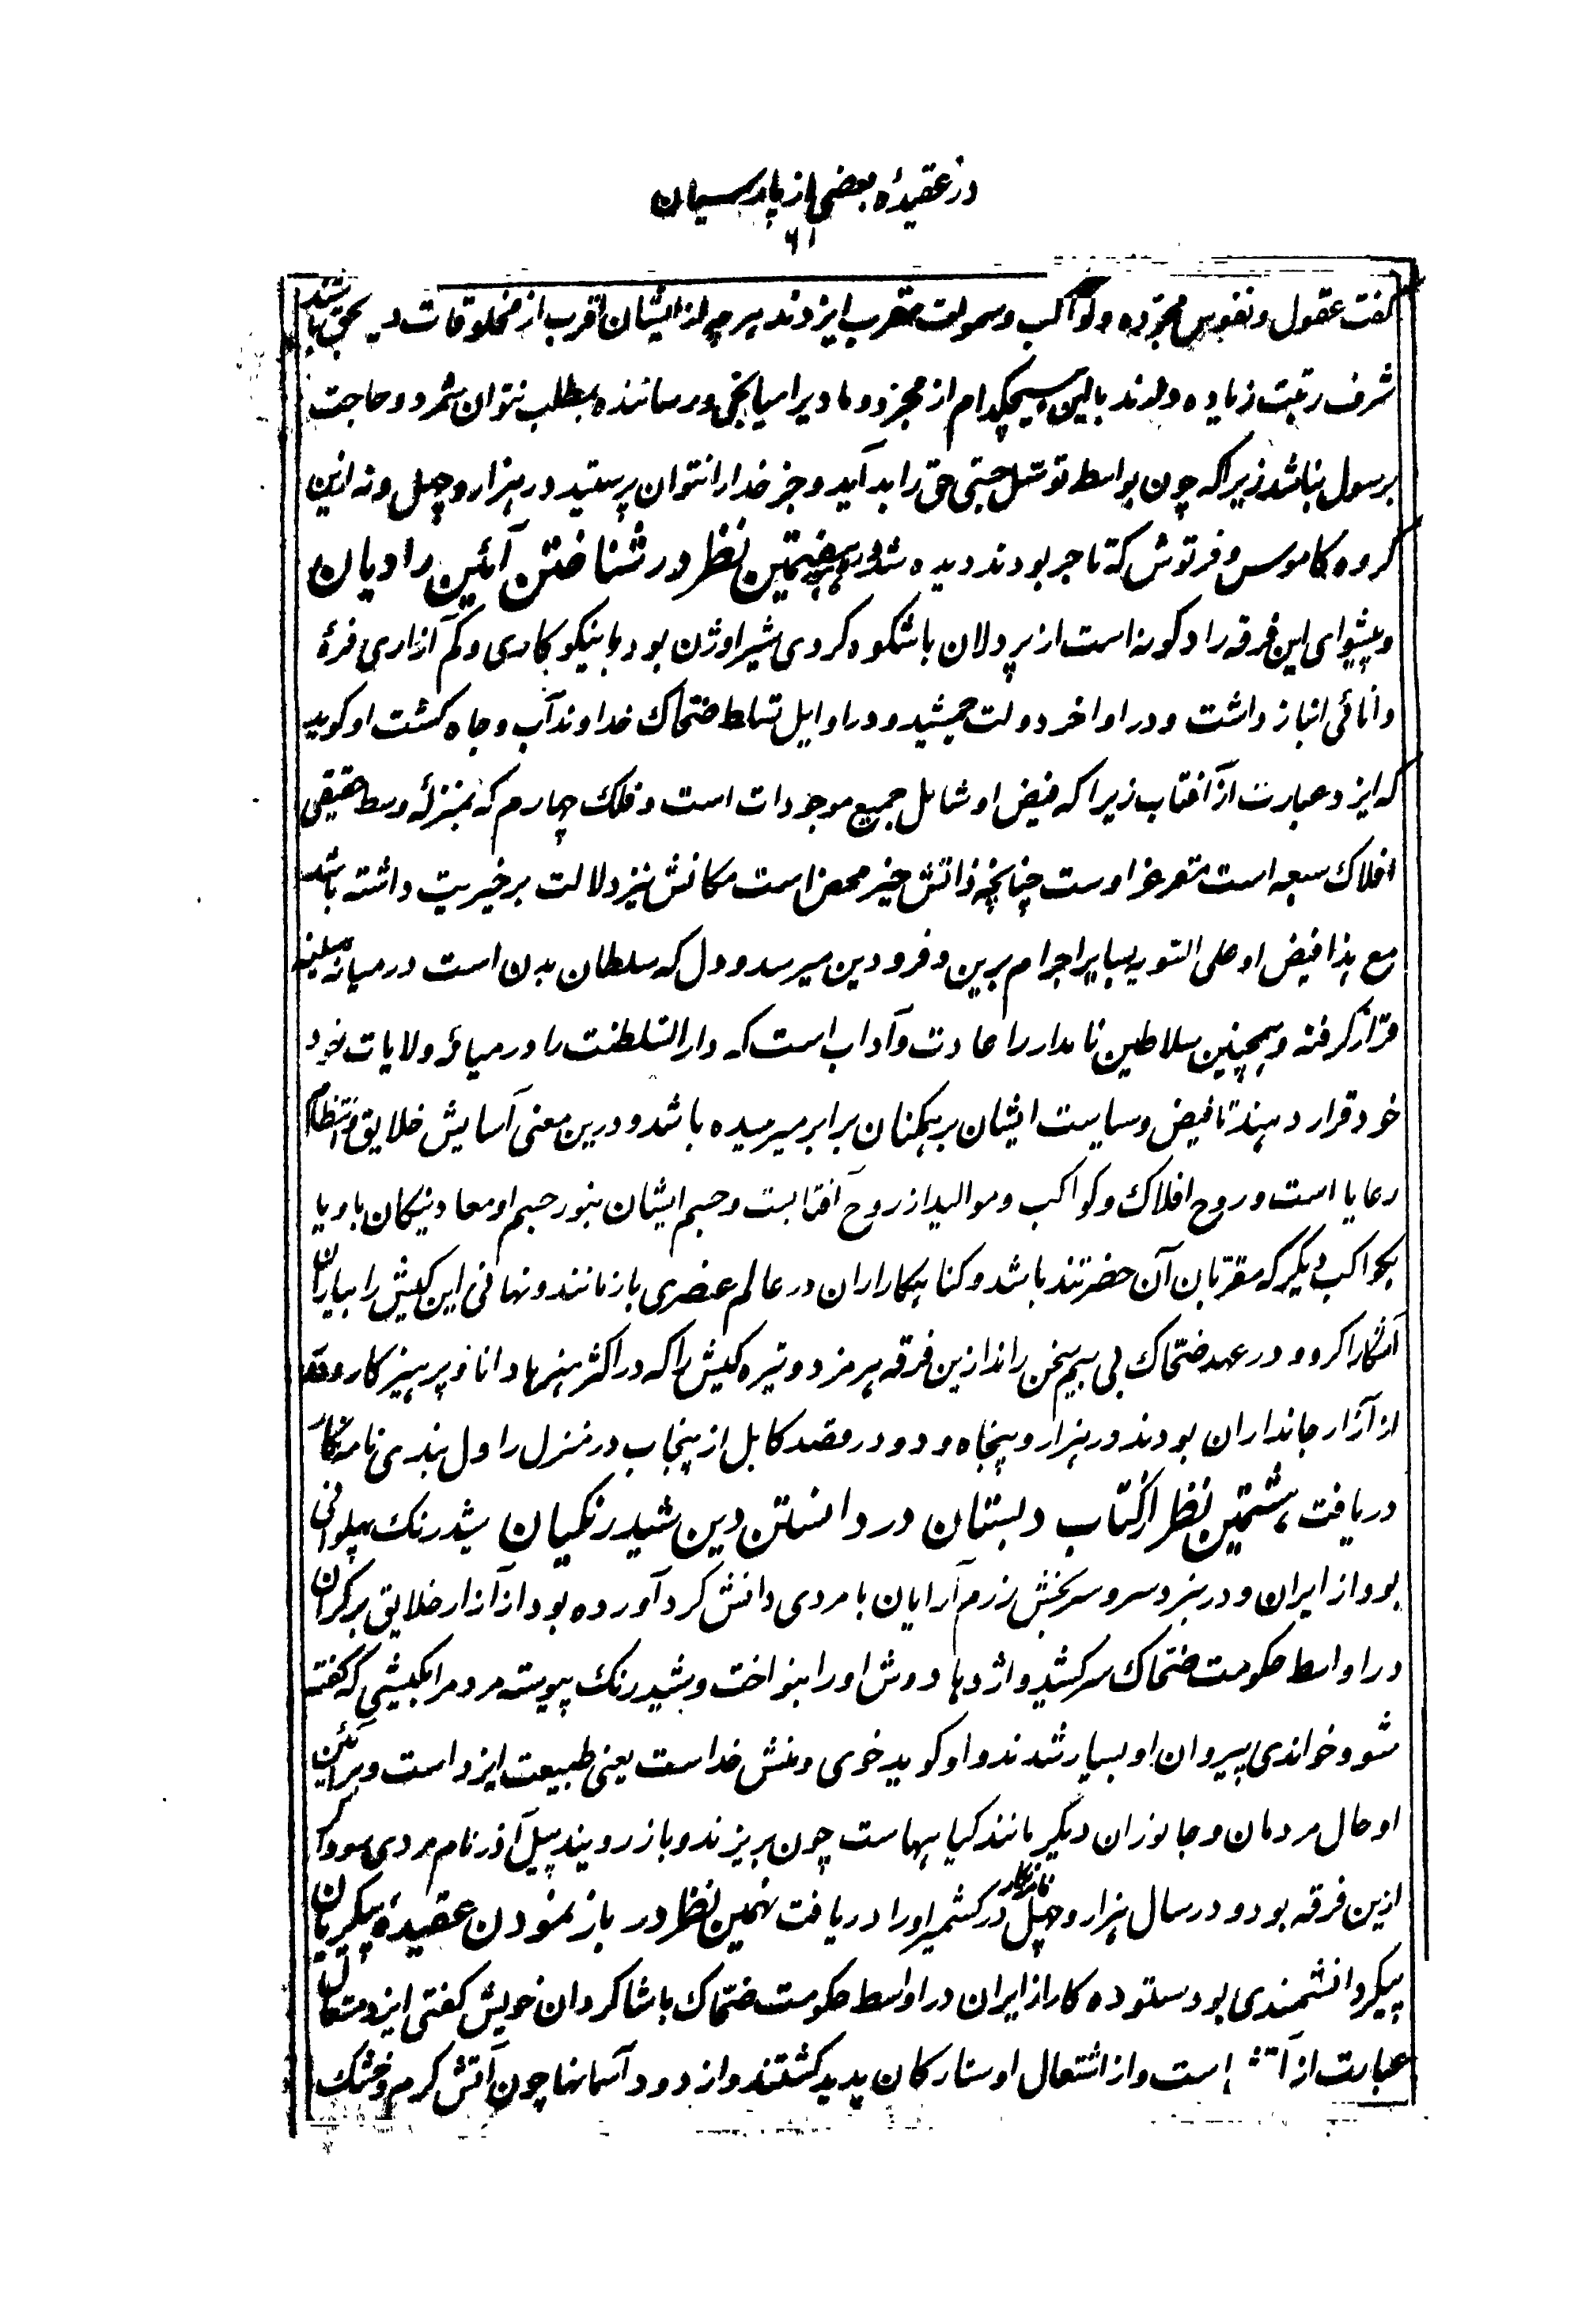 در عقیدهٔ بعضی از پارسیان
۶۱
گفت عقول و نفوس مجرده و کواکب و سموات مقرب ایزدند هر چه از ایشان اقرب از مخلوقات د بحق باشند
شرف رتبت زیاده دارند با این هیچکدام از مجرد و مادیرا میانجی و رساننده بمطلب نتوان شمرد و حاجت
برسول نباشد زیرا که چون بواسط توسل جستی حق را بد آید و جز خدا را نتوان پرستید در هزار و چهل و نه ازین
گروه کاموس و فرتوش که تاجر بودند دیده شد هفتمین نظر در شناختن آئین رادیان
و پیشوای این فرقه رادکونه است از پردلان باشکوه کردی شیر اوژن بود و با نیکو کاری و کم آزاری فرهٔ
دانائی انباز داشت و در اواخر دولت جمشید و در اوایل تسلط ضحاک خداوند آب و جاه گشت او گوید
که ایزد عبارت از آفتاب زیرا که فیض او شامل جمیع موجودات است و فلک چهارم که بمنزلهٔ وسط حقیقی
افلاک سبعه است مقر عز اوست چنانچه ذاتش خیر محض است مکانش نیز دلالت بر خیریت داشته باشد
مع هذا فیض او علی التسویه بسایر اجرام برین و فرودین میرسد و دل که سلطان بدن است در میانه سینه
قرار گرفته و همچنین سلاطین نامدار را عادت و آداب است که دار السلطنت را در میانهٔ ولایات خود
خود قرار دهند تا فیض و سیاست ایشان بر همگنان برابر میرسیده باشد و درین معنی آسایش خلایق و انتظام
رعایا است و روح افلاک و کواکب و موالید از روح آفتابست و جسم ایشان بنور جسم او معاد نیکان باو یا
بکواکب دیگر که مقربان آن حضرتند باشد و کناهکاراران در عالم عنصری باز مانند و نهانی این کیش را بیاران
آشکارا کرد و در عهد ضحاک بی بیم سخن راند ازین فرقه هرمزد و تیره کیش را که در اکثر هنرها دانا و پرهیزکار و دور
از آزار جانداران بودند در هزار و پنجاه و دو در مقصد کابل از پنجاب در منزل راول پندی نامه نگار
دریافت هشتمین نظر از کتاب دبستان در دانستن دین شیدرنگیان شیدرنگ پهلوانی
بود از ایران و در نبرد سر و سربخش رزم آرایان با مردی دانش گرد آورده بود از آزار خلایق بر کران
در اواسط حکومت ضحاک سر کشید و اژدها دوش او را بنواخت و شیدرنگ پیوسته مردم را بکیشی که گفته
شود خواندی پیروان او بسیار شدند و او گوید خوی و منش خداست یعنی طبیعت ایزد است و بر آئین
او حال مردمان و جانوران دیگر مانند گیاهها ست چون بریزند و باز رویند پیل آذر نام مردی سوداگر
ازین فرقه بود و در سال هزار و چهل نامه نگار در کشمیر او را دریافت نهمین نظر در باز نمودن عقیدهٔ پیکریان
پیکر دانشمندی بود ستوده کار از ایران در اواسط حکومت ضحاک با شاگردان خویش گفتی ایزد متعال
عبارت از آتش است و از اشتعال او ستارگان پدید گشتند و از دود آسمانها چون آتش گرم و خشک